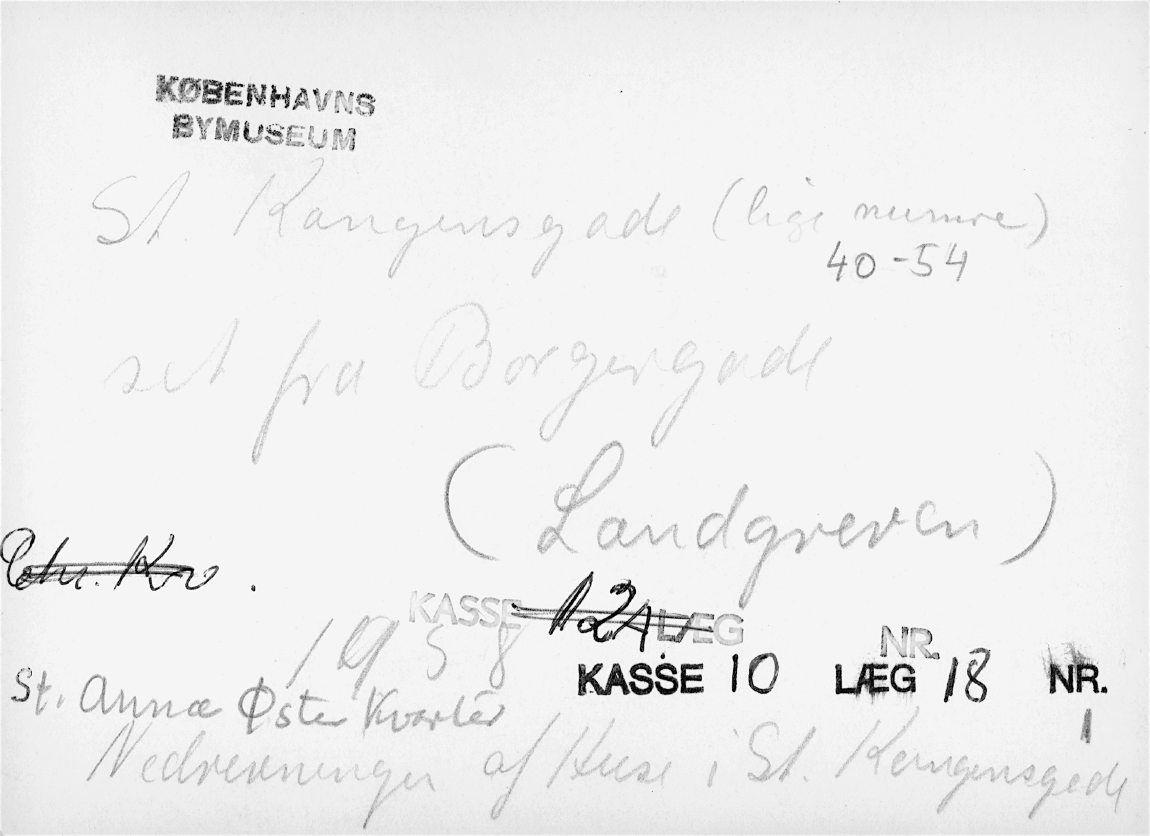 KØBENHAVNS
BYMUSEUM
St. Kongensgade (lige numre)
40-54
set fra Borgergade
(Landgreven)
Chr. Kv.
KASSE 12A LÆG NR.
1958
KASSE 10 LÆG 18 NR. 1
St. Annæ Øster Kvarter
Nedrivninger af Huse i St. Kongensgade